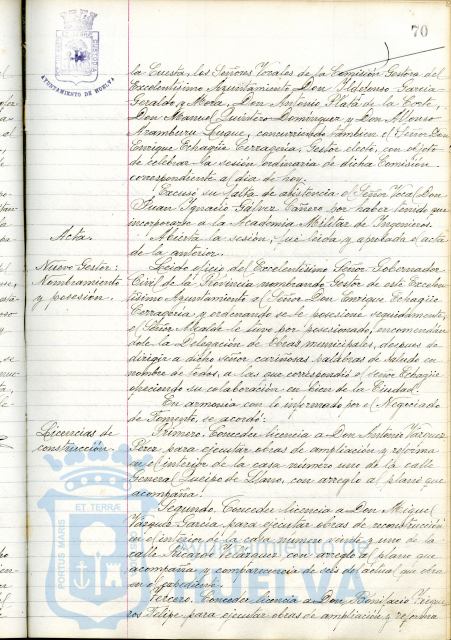 70
AYUNTAMIENTO DE HUELVA
la Cuesta, los Señores Vocales de la Comisión Gestora del
Excelentísimo Ayuntamiento Don Ildefonso García
Geraldo y Mora, Don Antonio Plata de la Corte,
Don Manuel Quintero Domínguez y Don Alfonso
Aramburu Luque, concurriendo también el Señor Don
Enrique Echagüe Cerragería, Gestor electo, con objeto
de celebrar la sesión ordinaria de dicha Comisión
correspondiente al día de hoy.
Excusó su falta de asistencia el Señor Vocal Don
Juan Ignacio Gálvez Cañero por haber tenido que
incorporarse a la Academia Militar de Ingenieros.
Acta.
Abierta la sesión, fue leída y aprobada el acta
de la anterior.
Nuevo Gestor:
Nombramiento
y posesión.
Leído oficio del Excelentísimo Señor Gobernador
Civil de la Provincia nombrando Gestor de este Excelen-
tísimo Ayuntamiento al Señor Don Enrique Echagüe
Cerragería y ordenando se le posesione seguidamente,
el Señor Alcalde le tuvo por posesionado, encomendán-
dole la Delegación de Obras municipales, después de
dirigir a dicho Señor cariñosas palabras de saludo en
nombre de todos, a las que correspondió el señor Echagüe
ofreciendo su colaboración en bien de la Ciudad.
En armonía con lo informado por el Negociado
de Fomento, se acordó:
Licencias de
construcción.
Primero. Conceder licencia a Don Antonio Vázquez
Pérez para ejecutar obras de ampliación y reforma
en el interior de la casa número uno de la calle
General Queipo de Llano, con arreglo al plano que
acompaña.
Segundo. Conceder licencia a Don Miguel
Vázquez García para ejecutar obras de reconstrucción
en el interior de la casa número veinte y uno de la
calle Ricardo Velázquez con arreglo al plano que
acompaña y comparecencia de seis del actual que obra
en el expediente.
Tercero. Conceder licencia a Don Bonifacio
Felipe para ejecutar obras de ampliación y reforma
PORTUS MARIS ET TERRAE
HUELVA